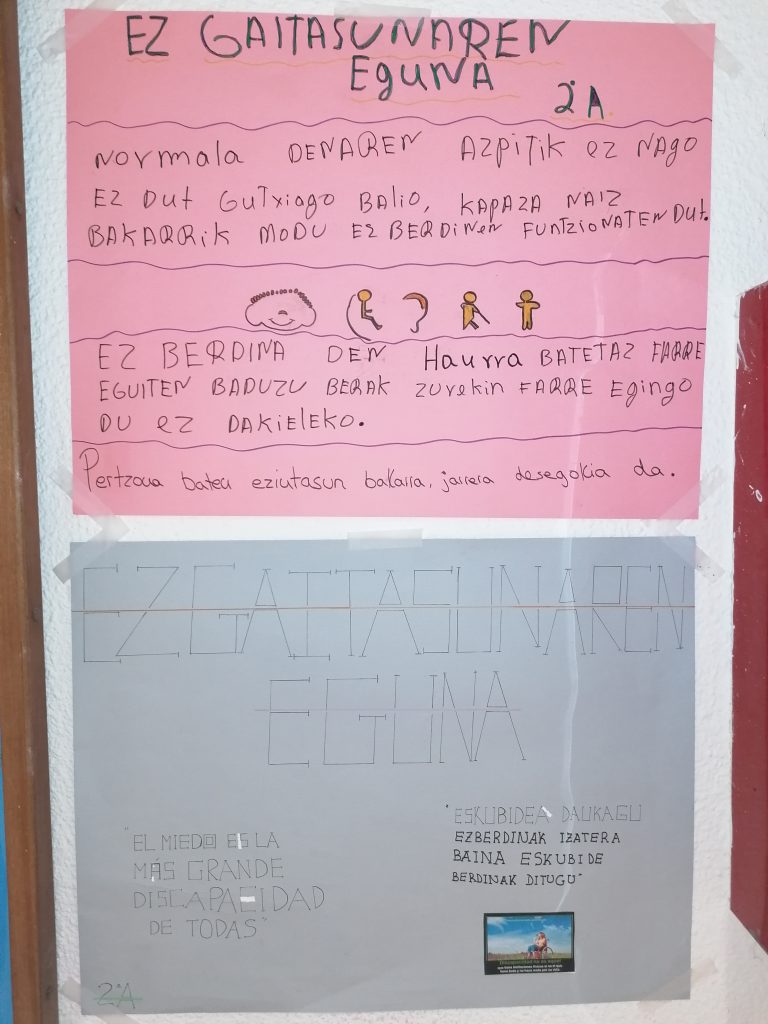 EZ GAITASUNAREN
EGUNA
2ºA
NORMALA DENAREN AZPITIK EZ NAGO
EZ DUT GUTXIAGO BALIO, KAPAZA NAIZ
BAKARRIK MODU EZ BERDINEN FUNTZIONATEN DUT.
EZ BERDINA DEN Haurra BATETAZ FARRE
EGUITEN BADUZU BERAK ZUREKIN FARRE EGINGO
DU EZ DAKIELEKO.
bateu eziutasun bakarra, jarrera desegokia da.
EZGAITASUNAREN
EGUNA
"EL MIEDO ES LA
MÁS GRANDE
DISCAPACIDAD
DE TODAS"
"ESKUBIDEA DAUKAGU
EZBERDINAK IZATERA
BAINA ESKUBIDE
BERDINAK DITUGU"
2ºA